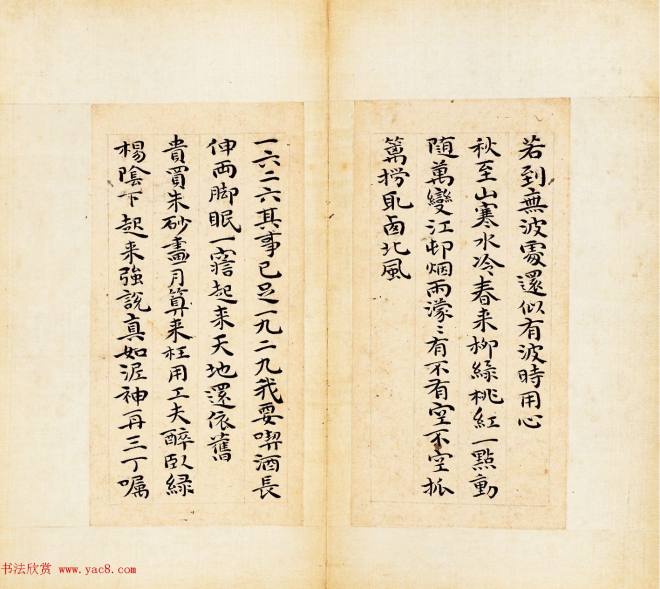 若到無波處還似有波時用心
秋至山寒水冷春来柳綠桃紅一點動
隨萬變江邨烟雨濛〻有不有空不空笊
篱撈取西北風
一六二六其事已足一九二九我要喫酒長
伸兩脚眠一寤起来天地還依舊
貴買朱砂畫月算来枉用工夫醉臥緑
楊陰下起来強説真如泥神再三丁嘱
书法欣赏 www.yac8.com